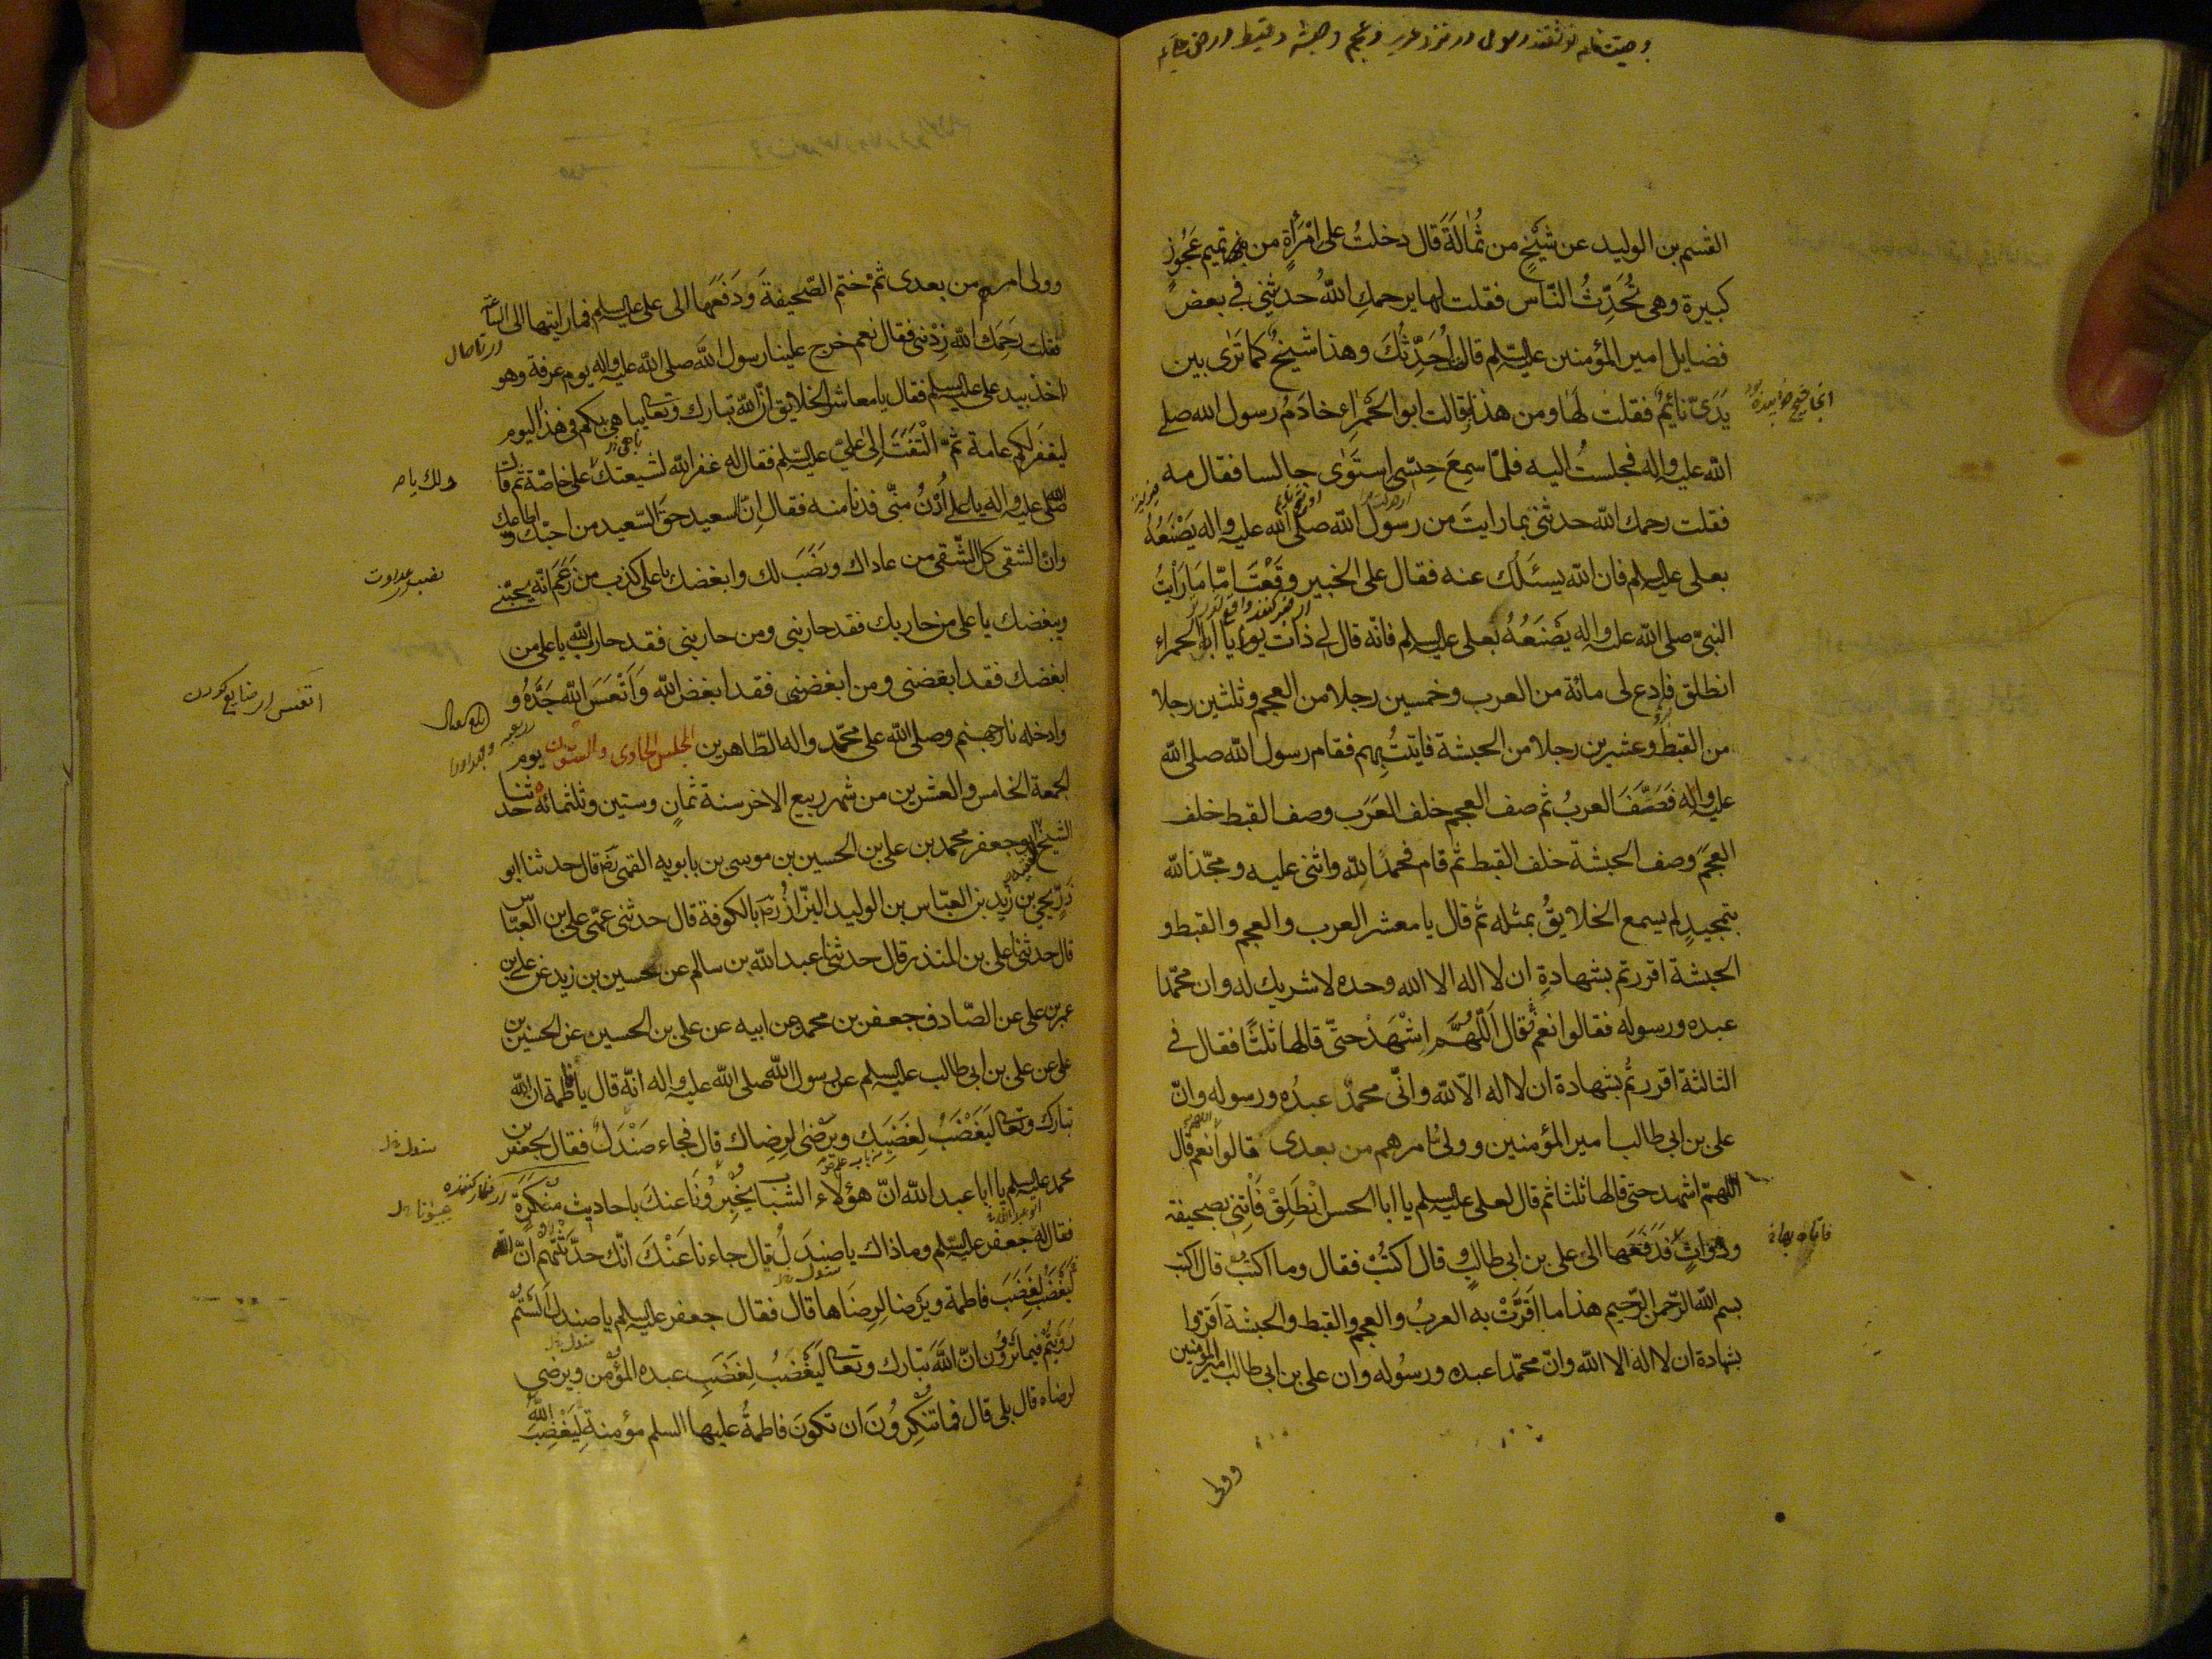 القسم بن الوليد عن شيخ من ثمالة قال دخلت على امرأة من تميم عجوز
كبيرة وهى تحدث الناس فقلت لها يرحمك الله حدثينى في بعض
فضايل امير المؤمنين عليه السلم قالت احدثك وهذا شيخ كما ترى بين
يدى نائم فقلت لها ومن هذا قالت ابو الحمراء خادم رسول الله صلى
الله عليه واله فجلست اليه فلما سمع حسى استوى جالسا فقال مه
فقلت رحمك الله حدثنى بما رايت من رسول الله صلى الله عليه واله يصنعه
بعلى عليه السلم فان الله يسئلك عنه فقال على الخبير وقعت اما ما رايت
النبى صلى الله عليه واله يصنعه بعلى عليه السلم فانه قال لى ذات يوم يا ابا الحمراء
انطلق فادع لى مائة من العرب وخمسين رجلا من العجم وثلثين رجلا
من القبط وعشرين رجلا من الحبشة فاتيت بهم فقام رسول الله صلى الله
عليه واله فصفف العرب ثم صف العجم خلف العرب وصف القبط خلف
العجم وصف الحبشة خلف القبط ثم قام فحمد الله واثنى عليه ومجد الله
بتمجيد لم يسمع الخلايق بمثله ثم قال يا معشر العرب والعجم والقبط و
الحبشة اقررتم بشهادة ان لا اله الا الله وحده لا شريك له وان محمدا
عبده ورسوله فقالوا نعم فقال اللهم اشهد حتى قالها ثلثا فقال في
الثالثة اقررتم بشهادة ان لا اله الا الله وانى محمد عبده ورسوله وان
على بن ابى طالب امير المؤمنين وولى امرهم من بعدى قالوا اللهم نعم قال
اللهم اشهد حتى قالها ثلثا ثم قال لعلى عليه السلم يا ابا الحسن انطلق فأتنى بصحيفة
ودوات فدفعها الى على بن ابى طالب وقال اكتب فقال وما اكتب قال اكتب
بسم الله الرحمن الرحيم هذا ما اقرت به العرب والعجم والقبط والحبشة اقروا
بشهادة ان لا اله الا الله وان محمدا عبده ورسوله وان على بن ابى طالب امير المؤمنين
وولى
وولى امرهم من بعدى ثم ختم الصحيفة ودفعها الى على عليه السلم فما رايتها الى الساعة
فقلت رحمك الله زدنى فقال نعم خرج علينا رسول الله صلى الله عليه واله يوم عرفة وهو
اخذ بيد على عليه السلم فقال يا معاشر الخلايق ان الله تبارك وتعالى باهى بكم في هذا اليوم
ليغفر لكم عامة ثم التفت الى على عليه السلم فقال له غفر الله لشيعتك على خاصة ثم قال
صلى الله عليه واله يا على ادن منى فدنا منه فقال ان السعيد حق السعيد من احبك واطاعك
وان الشقى كل الشقى من عاداك ونصب لك وابغضك يا على كذب من زعم انه يحبنى
ويبغضك يا على من حاربك فقد حاربنى ومن حاربنى فقد حارب الله يا على من
ابغضك فقد ابغضنى ومن ابغضنى فقد ابغض الله واتعس الله جده و
وادخله نار جهنم وصلى الله على محمد واله الطاهرين المجلس الحادى والستون يوم
الجمعة الخامس والعشرين من شهر ربيع الاخر سنة ثمان وستين وثلثمائة حدثنا
الشيخ الفقيه ابو جعفر محمد بن على بن الحسين بن موسى بن بابويه القمى رضه قال حدثنا ابو
ذر يحيى بن زيد بن العباس بن الوليد البزاز بالكوفة قال حدثنى عمى على بن العباس
قال حدثنا على بن المنذر قال حدثنا عبد الله بن سالم عن حسين بن زيد عن على بن
عمر بن على عن الصادق جعفر بن محمد عن ابيه عن على بن الحسين عن الحسين بن
على عن على بن ابى طالب عليه السلم عن رسول الله صلى الله عليه واله انه قال يا فاطمة ان الله
تبارك وتعالى ليغضب لغضبك ويرضى لرضاك قال فجاء صندل فقال لجعفر بن
محمد عليه السلم يا ابا عبد الله ان هؤلاء الشباب يخبرونا عنك باحاديث منكرة
فقال له جعفر عليه السلم وما ذاك يا صندل قال جاءنا عنك انك حدثتهم ان الله
ليغضب لغضب فاطمة ويرضا لرضاها قال فقال جعفر عليه السلم يا صندل الستم
رويتم فيما تروون ان الله تبارك وتعالى ليغضب لغضب عبده المؤمن ويرضى
لرضاه قال بلى قال فما تنكرون ان تكون فاطمة عليها السلم مؤمنة ليغضب الله